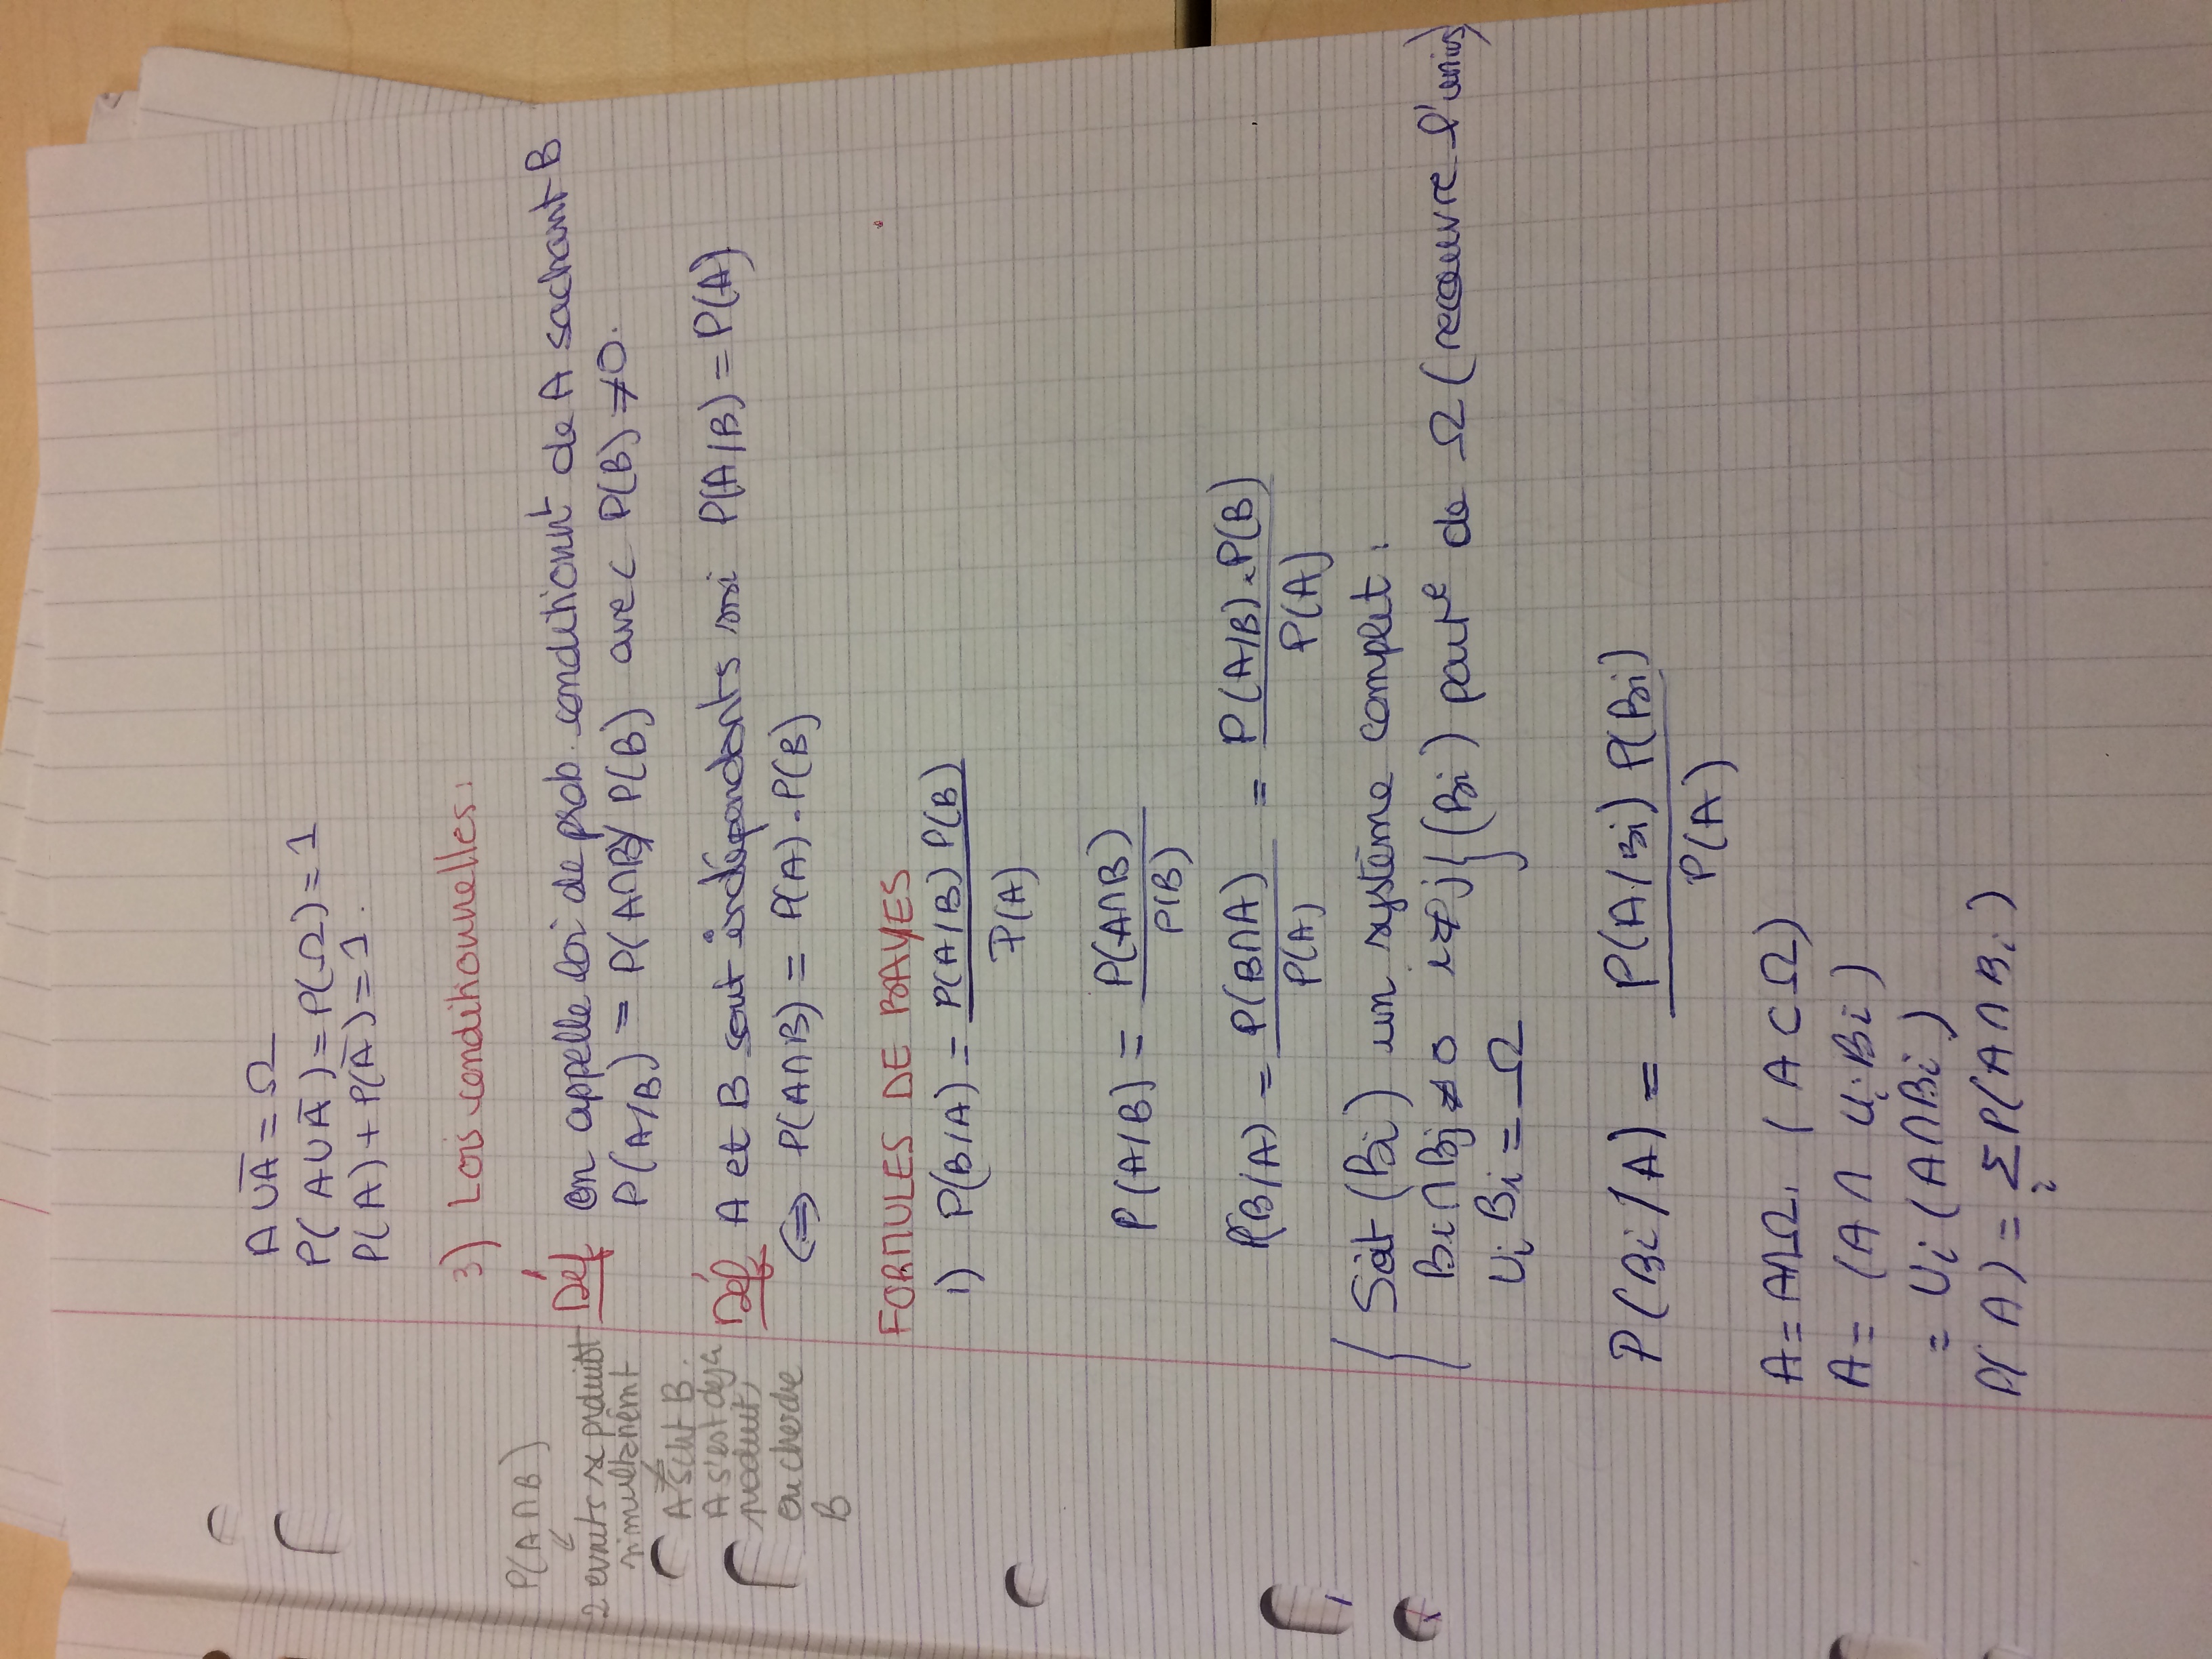 A ∪ Ā = Ω
P( A ∪ Ā ) = P(Ω) = 1
P( A ) + P( Ā ) = 1.
3) Lois conditionnelles :
P(A∩B)
↙
2 evnets se produist
simultanémt
≠
A scht B.
A s'est deja
produit,
on cherche
B
Déf on appelle loi de prob. conditionnt de A sachant B
P(A/B) = P(A∩B)/ P(B) avec P(B) ≠ 0.
Déf A et B sont indépendants ssi P(A/B) = P(A)
⇔ P(A∩B) = P(A) . P(B)
FORMULES DE BAYES
1) P(B/A) = P(A/B) P(B)
P(A)
P(A/B) = P(A∩B)
P(B)
P(B/A) = P(B∩A) = P(A/B) . P(B)
P(A) P(A)
Soit (Bi) un système complet :
Bi∩Bj ≠ 0 i ≠ j } (Bi) parte de Ω ( recouvre l'univs)
∪i Bi = Ω
P(Bi/A) = P(A/Bi) P(Bi)
P(A)
A = A∩Ω, ( A ⊂ Ω)
A = (A ∩ ∪i Bi )
= ∪i (A∩Bi )
P( A ) = Σ P(A ∩ Bi )
i